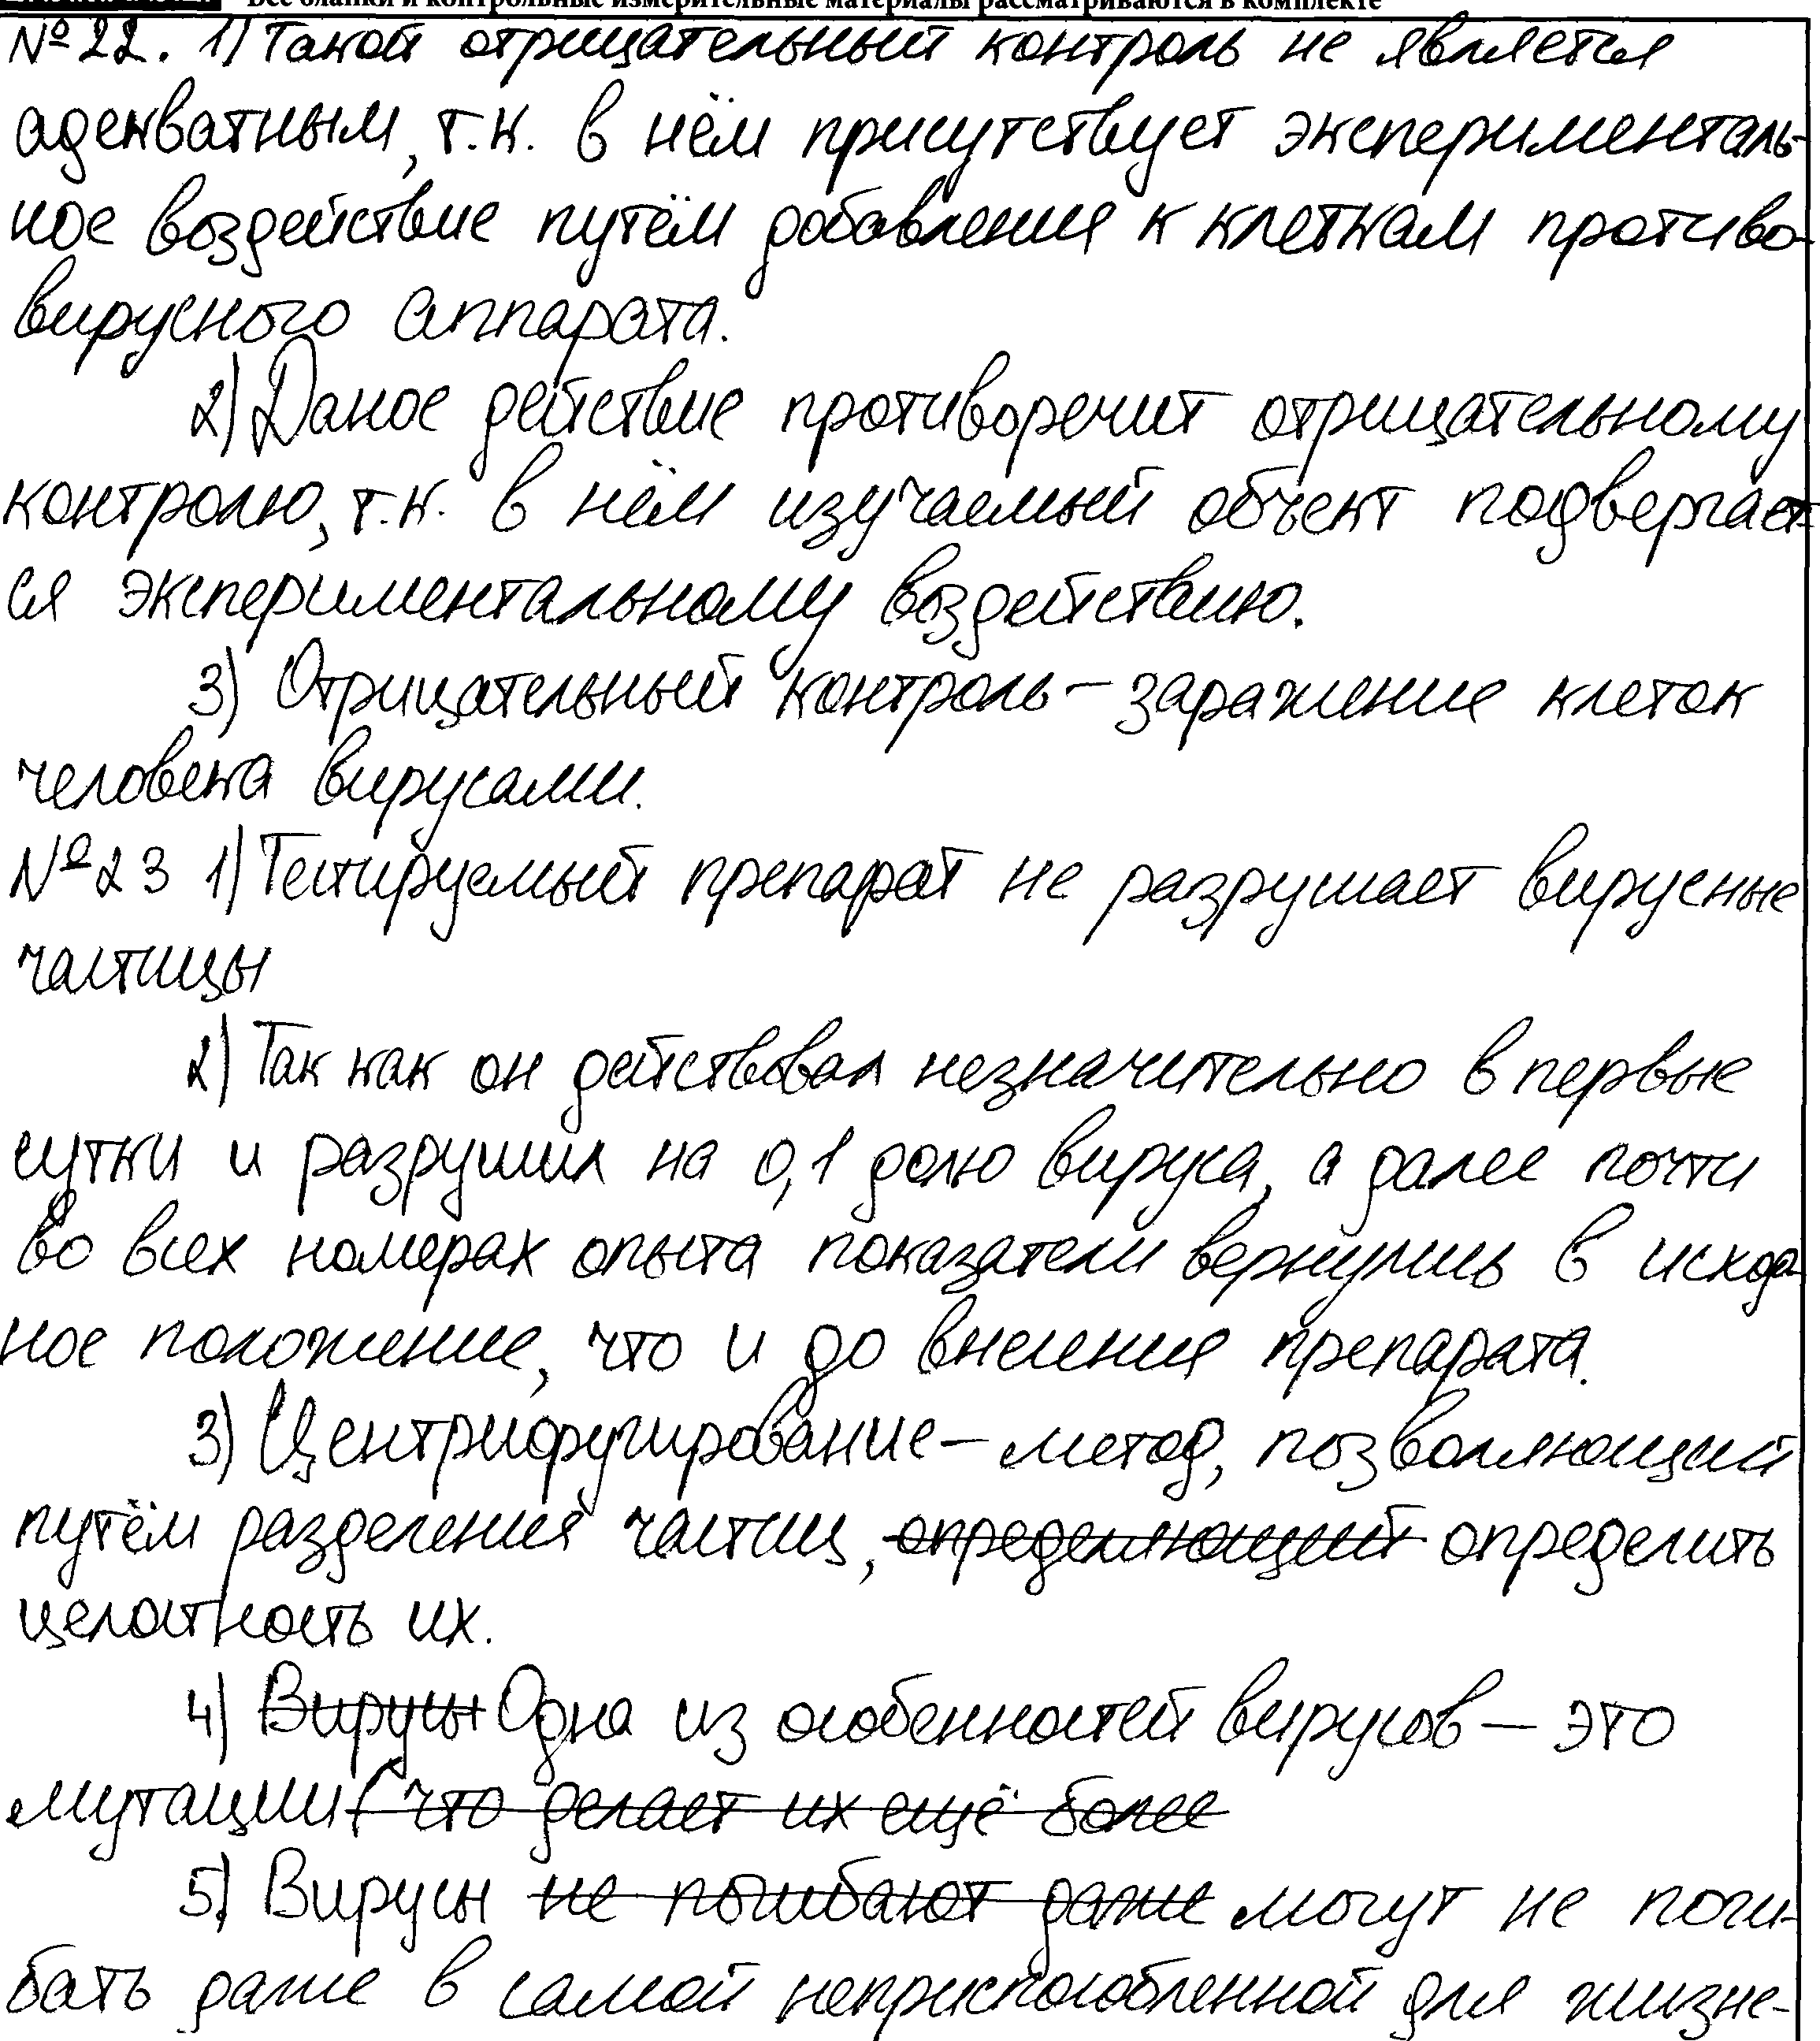 Все бланки и контрольные измерительные материалы рассматриваются в комплекте
№22. 1) Такой отрицательный контроль не является
адекватным, т.к. в нём присутствует эксперименталь-
ное воздействие путём добавления к клеткам противо-
вирусного аппарата.
2) Даное действие противоречит отрицательному
контролю, т.к. в нём изучаемый объект подвергает-
ся экспериментальному воздействию.
3) Отрицательный контроль – заражение клеток
человека вирусами.
№23 1) Тестируемый препарат не разрушает вирусные
частицы
2) Так как он действовал незначительно в первые
сутки и разрушил на 0,1 долю вируса, а далее почти
во всех номерах опыта показатели вернулись в исход-
ное положение, что и до внесения препарата.
3) Центрифугирование – метод, позволяющий
путём разделения частиц, определяющий определить
целостность их.
4) Вирусы Одна из особенностей вирусов – это
мутации ( что делает их ещё более
5) Вирусы не погибают даже могут не поги-
бать даже в самой неприспособленной для жизне-